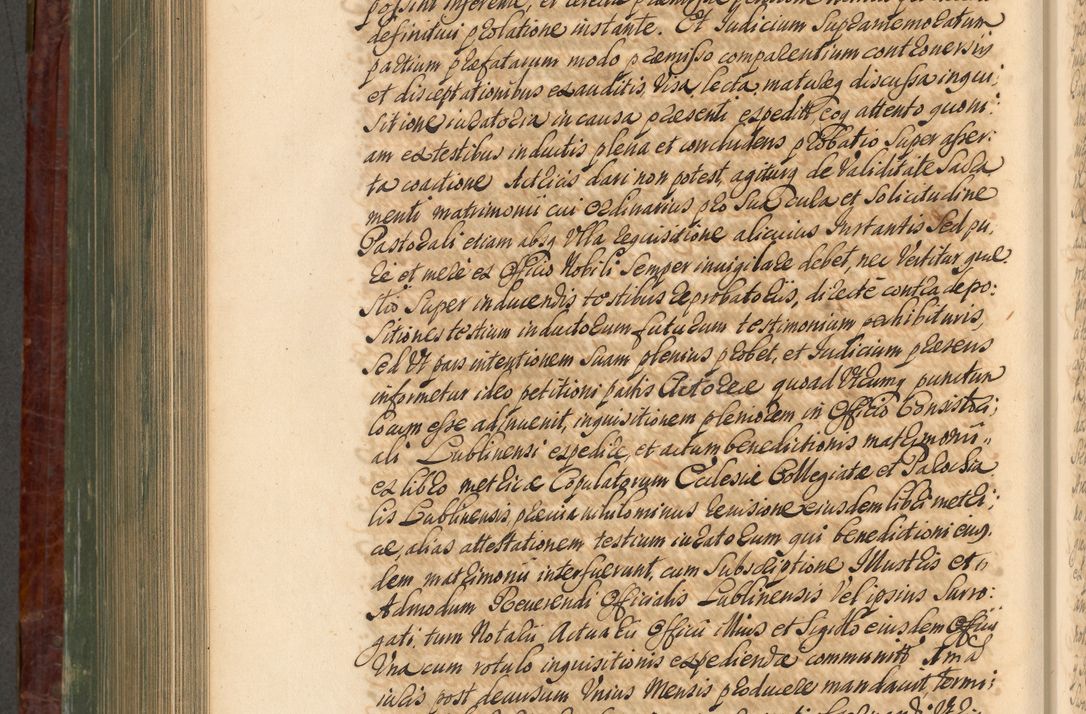 definitivi prolatione instante. Et Judicium Supramemoratum
partium præfatarum modo præmisso comparentium controversiis
et disceptationibus exauditis, Visa lecta, matureq discussa inqui:
sitione iuratoria in causa præsenti expedit, eoq attento quoni:
am ex testibus inductis plena et concludens probatio super asser:
ta coactione Actricis dari non potest, agiturq de Validitate Sacra
menti matrimonii cui ordinarius pro Sua Cura et Solicitudine
Pastorali etiam absq Ulla requisitione alicuius Instantis Sed pu,
re et mere ex Officio Nobili Semper invigilare debet, nec Vertitur que
stio Super inducendis testibus reprobatoriis, directe contra depo:
sitiones testium inductorum futurum testimonium perhibituris,
sed Ut pars intentionem suam plenius probet, et Judicium præsens
informetur ideo petitioni partis Actoreæ quoad Utrumq punctum
locum esse adinvenit, inquisitionem pleniorem in Officio Consistori;
ali Lublinensi expedire, et actum benedictionis matrimonii
ex libro metricæ Copulatorum Ecclesiæ Collegiatæ et Parochia
lis Lublinensis, prævia nihilominus revisione eiusdem libri metri;
cæ, alias attestationem testium iuratorum qui benedictioni eiuq
dem matrimonii interfuerunt, cum Subscriptione Illustris et
Admodum Reverendi Officialis Lublinensis Vel ipsius Surro:
gati, tum Notarii Actuarii Officii illius et Sigillo eiusdem Officii
Una cum rotulo inquisitionis expediendæ communitt
iuris post decursum Unius Mensis producere mandavit, Termi: